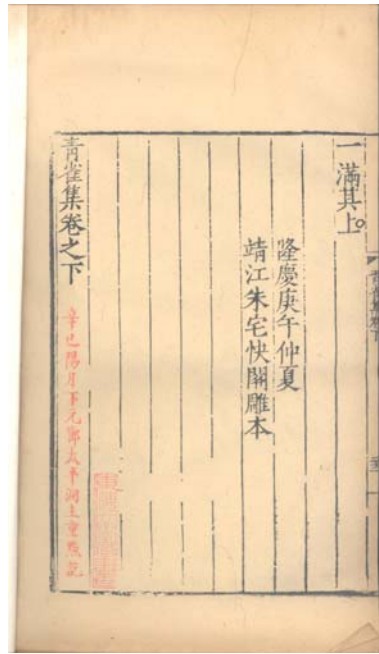 一滿其上
隆慶庚午仲夏
靖江朱宅快閣雕本
青雀集卷之下
辛巳陽月下元鄧太平洞主重裝記